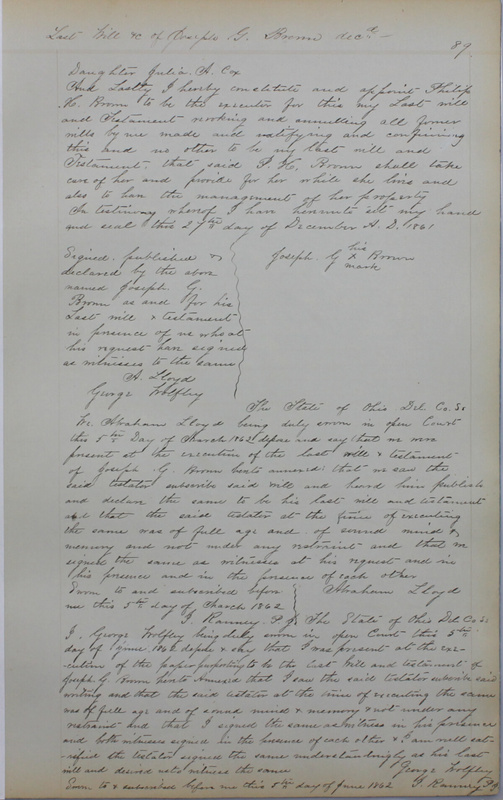 Last Will &c of Joseph G. Brown decd —
89
Daughter Julia. A. Cox
And Lastly I hereby constitute and appoint Philip
H. Brown to be the executor for this my Last will
and Testament revoking and annulling all former
wills by me made and ratifying and confirming
this and no other to be my last will and
Testament. that said P. H. Brown shall take
care of her and provide for her while she lives and
also to have the management of her property
In testimony whereof I have hereunto set my hand
and seal this 27th day of December A. D. 1861
Joseph G his x mark Brown
Signed, published &
declared by the above
named Joseph G.
Brown as and for his
Last will & testament
in presence of us who at
his request have signed
as witnesses to the same
A. Lloyd
George Wolfley
The State of Ohio Del Co. Ss
We Abraham Lloyd being duly sworn in open Court
this 5th Day of March 1862 depose and say that we were
present at the execution of the last will & testament
of Joseph G Brown hereto annexed that we saw the
said testator subscribe said will and heard him publish
and declare the same to be his last will and testament
and that the said testator at the time of executing
the same was of full age and of sound mind &
memory and not under any restraint and that we
signed the same as witnesses at his request and in
his presence and in the presence of each other
Sworn to and subscribed before
me this 5th day of March 1862
Abraham Lloyd
T. Ranney P. J.
The State of Ohio Del Co Ss
I. George Wolfley being duly sworn in open Court this 5th
day of June 1862 depose & say that I was present at the exe-
cution of the paper purporting to be the last Will and testament of
Joseph G. Brown hereto annexed that I saw the said testator subscribe said
writing and that the said testator at the time of executing the same
was of full age and of sound mind & memory & not under any
restraint and that I signed the same as witness in his presence
and both witnesses signed in the presence of each other & I am well sat-
isfied the testator signed the same understandingly as his last
will and desired us to witness the same
George Wolfley
Sworn to & subscribed before me this 5th day of June 1862
T. Ranney P. J.